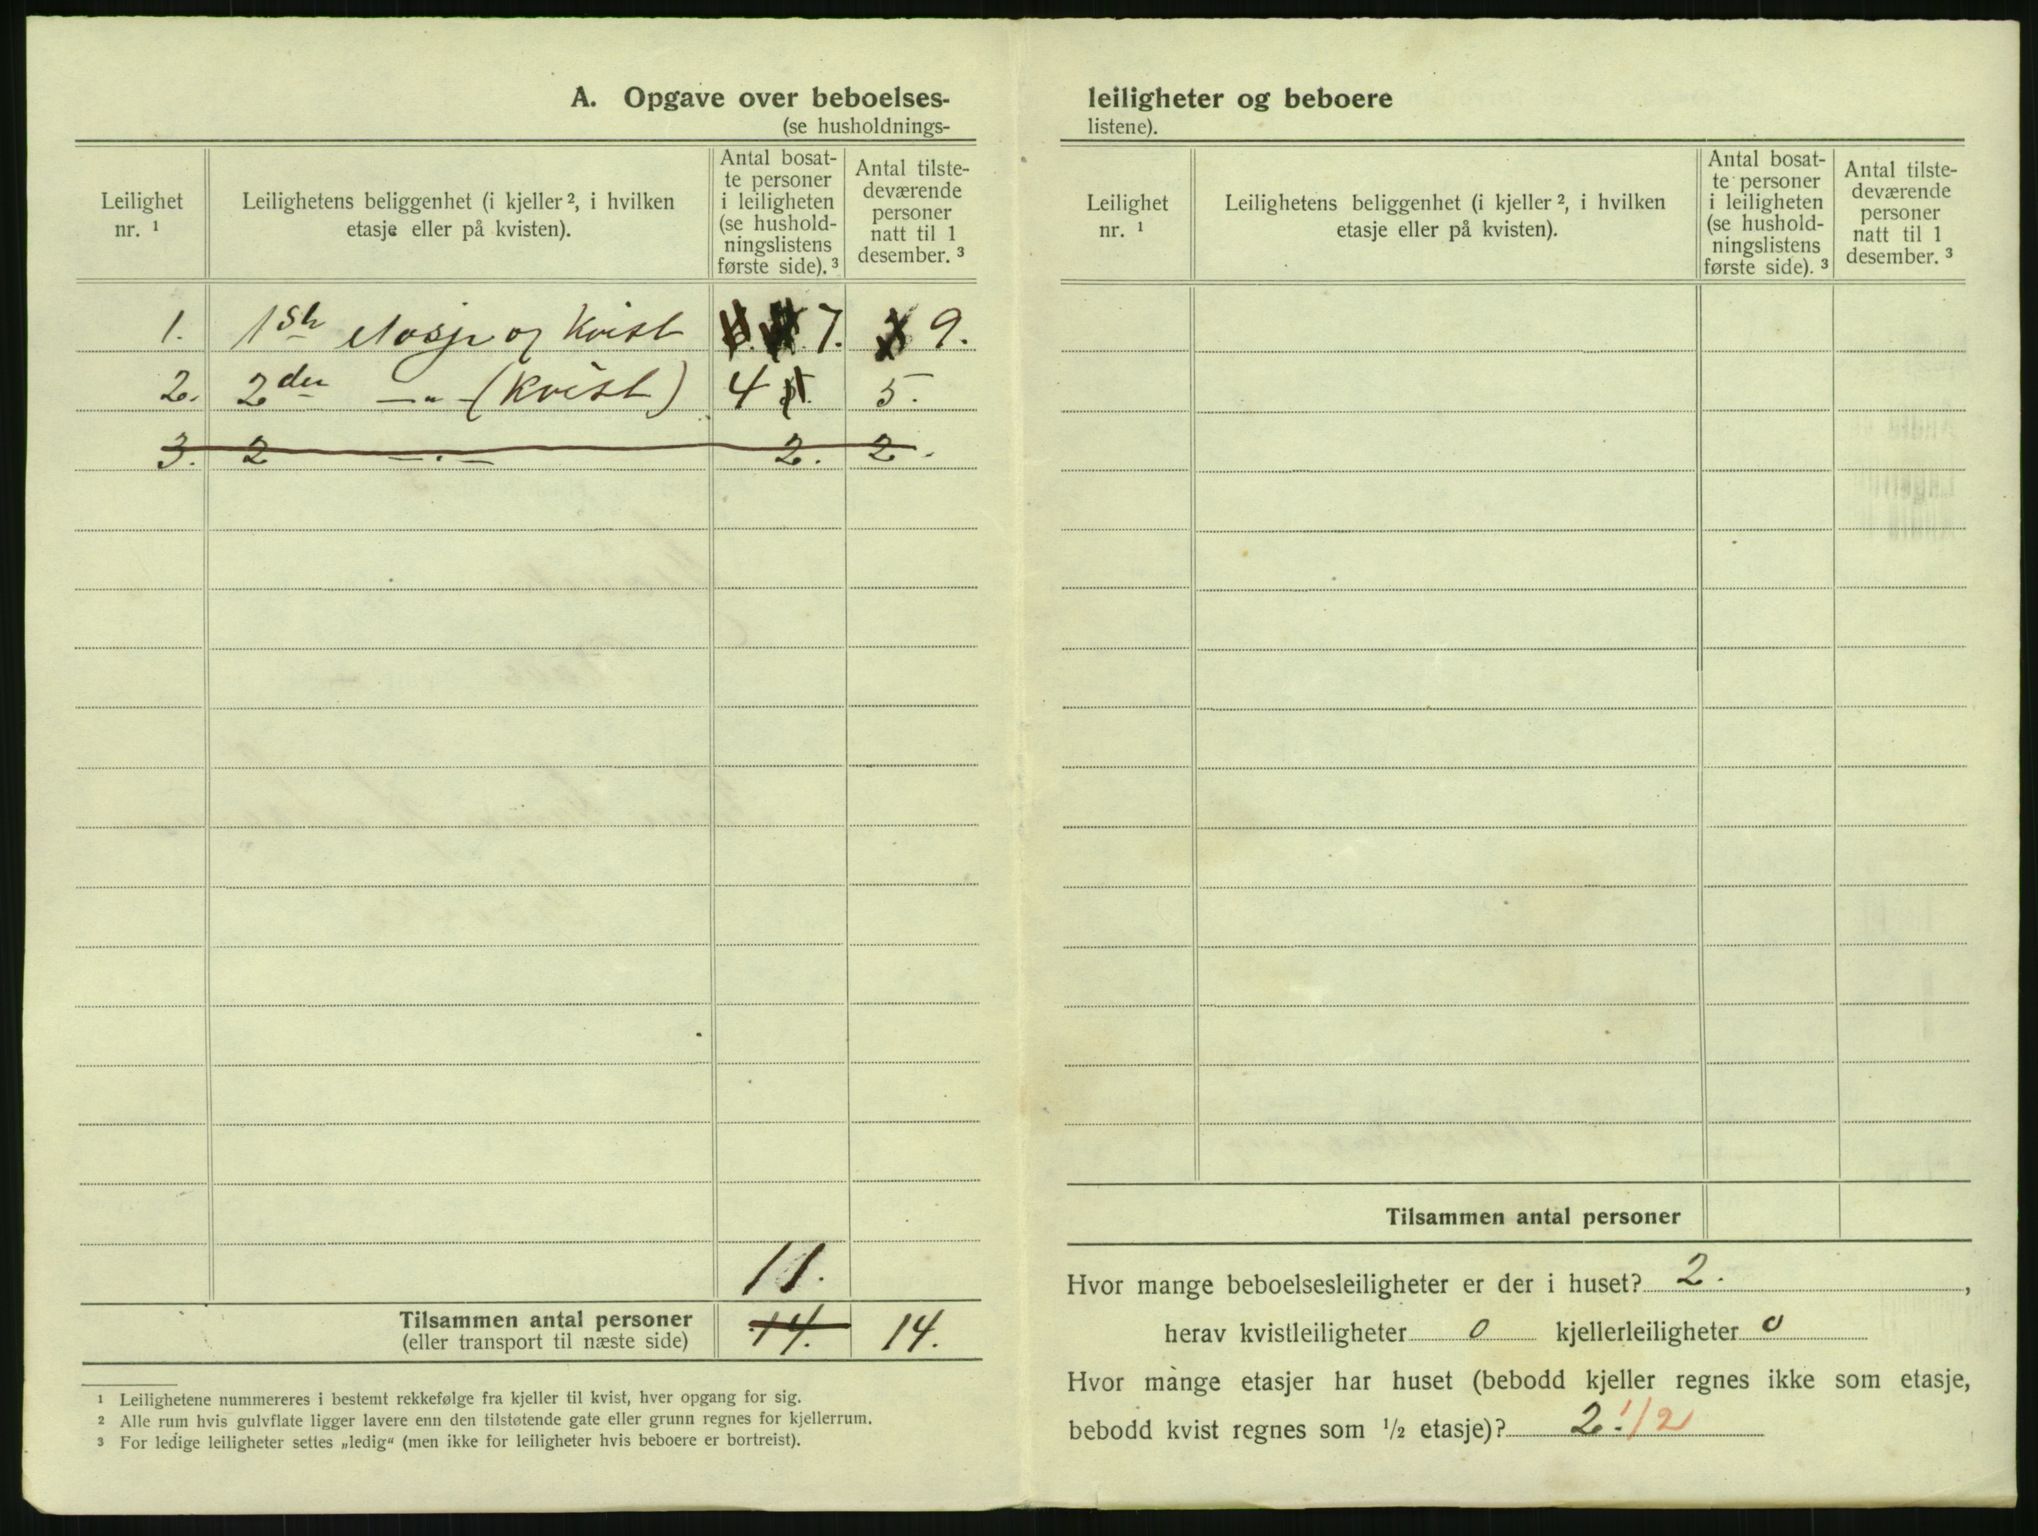 A. Opgave over beboelses-
(se husholdnings-
Leilighet
nr. ¹
Leilighetens beliggenhet (i kjeller ², i hvilken
etasje eller på kvisten).
Antal bosat-
te personer
i leiligheten
(se hushold-
ningslistens
første side). ³
Antal tilste-
deværende
personer
natt til 1
desember. ³
1. 1ste etasje og Kvist 7. 9.
2. 2den —„— (Kvist) 4 5.
3. 2 —„— 2. 2.
11.
Tilsammen antal personer 14. 14.
(eller transport til næste side)
¹ Leilighetene nummereres i bestemt rekkefølge fra kjeller til kvist, hver opgang for sig.
² Alle rum hvis gulvflate ligger lavere enn den tilstøtende gate eller grunn regnes for kjellerrum.
³ For ledige leiligheter settes „ledig“ (men ikke for leiligheter hvis beboere er bortreist).
leiligheter og beboere
listene).
Leilighet
nr. ¹
Leilighetens beliggenhet (i kjeller ², i hvilken
etasje eller på kvisten).
Antal bosat-
te personer
i leiligheten
(se hushold-
ningslistens
første side). ³
Antal tilste-
deværende
personer
natt til 1
desember. ³
Tilsammen antal personer
Hvor mange beboelsesleiligheter er der i huset? 2. ,
herav kvistleiligheter 0 kjellerleiligheter 0
Hvor mange etasjer har huset (bebodd kjeller regnes ikke som etasje,
bebodd kvist regnes som ½ etasje)? 2. 1/2